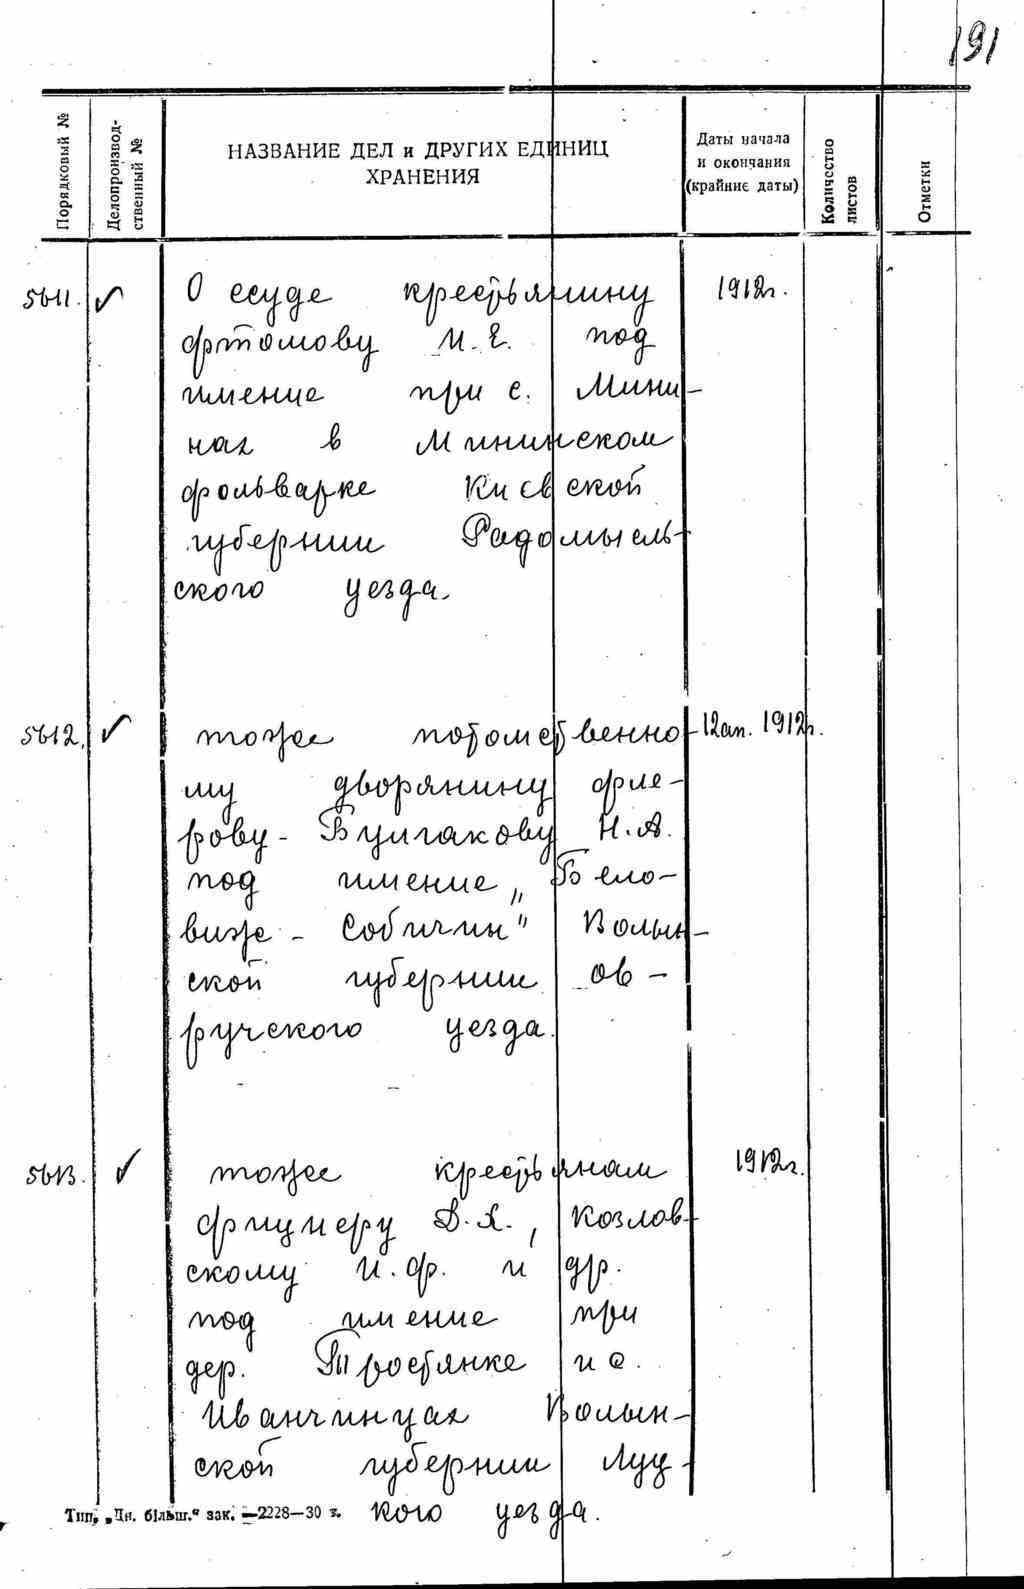 191
Порядковый №
Делопроизвод-
ственный №
НАЗВАНИЕ ДЕЛ и ДРУГИХ ЕДИНИЦ
ХРАНЕНИЯ
Даты начала
и окончания
(крайние даты)
Количество
листов
Отметки
5611. ✓ О ссуде крестьянину 1912г.
фтомову И.Е. под
имение при с. Мини-
нах в Мининском
фольварке Киевской
губернии Радомысль-
ского уезда.
5612. ✓ тоже потомственно- 12 ап. 1912г.
му дворянину Фле-
рову-Булгакову Н.А.
под имение „Бело-
виже-Собичин" Волын-
ской губернии Ов-
ручского уезда.
5613. ✓ тоже крестьянам 1912г.
Фицнеру Д.Я., Козлов-
скому И.Ф. и др.
под имение при
дер. Тростянке и с.
Иванчинцах Волын-
ской губернии Луц-
кого уезда.
Тип. „Дн. більш." зак. —2228—30 т.